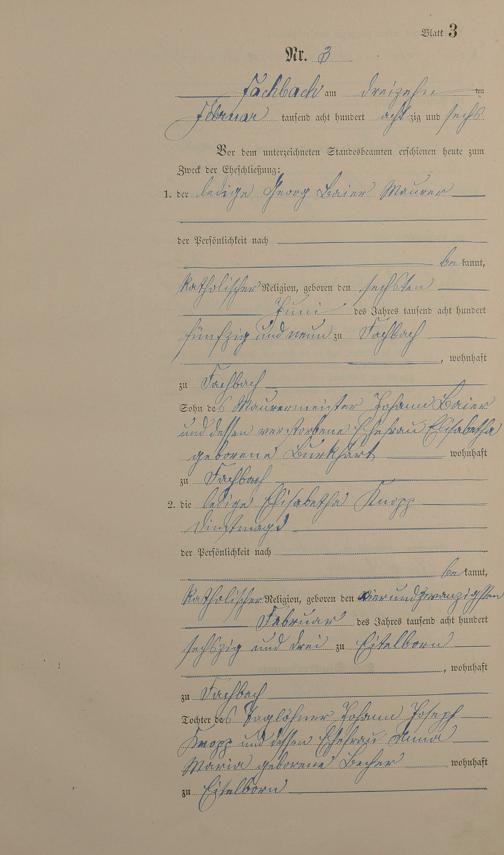 Blatt 3
Nr. 3
Fachbach am dreizehn ten
Februar tausend acht hundert acht zig und sechs
Vor dem unterzeichneten Standesbeamten erschienen heute zum
Zweck der Eheschließung:
1. der ledige Georg Baier Maurer
der Persönlichkeit nach
be kannt,
katholischer Religion, geboren den sechsten
Juni des Jahres tausend acht hundert
fünfzig und neun zu Fachbach
, wohnhaft
zu Fachbach
Sohn des Maurermeister Johann Baier
und dessen verstorbene Ehefrau Elisabetha
geborene Burkhart wohnhaft
zu Fachbach
2. die ledige Elisabetha Knopp
Dinstmagd
der Persönlichkeit nach
be kannt,
katholischer Religion, geboren den vierundzwanzigsten
Februar des Jahres tausend acht hundert
sechszig und drei zu Eitelborn
, wohnhaft
zu Fachbach
Tochter des Taglöhner Johann Joseph
Knopp und dessen Ehefrau Anna
Maria geborene Becher wohnhaft
zu Eitelborn